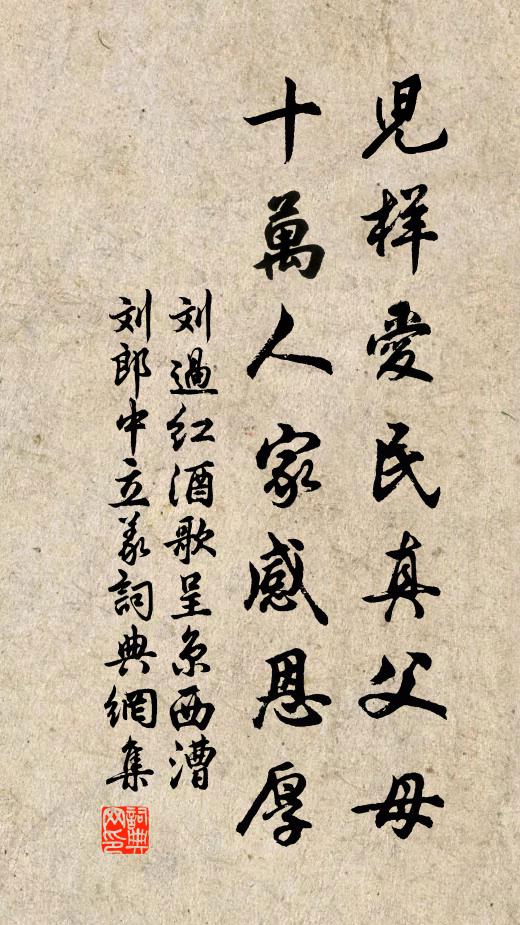 兒样愛民真父母
十萬人家感恩厚
刘過红酒歌呈京西漕
刘郎中立義詞典網集
詞典网印